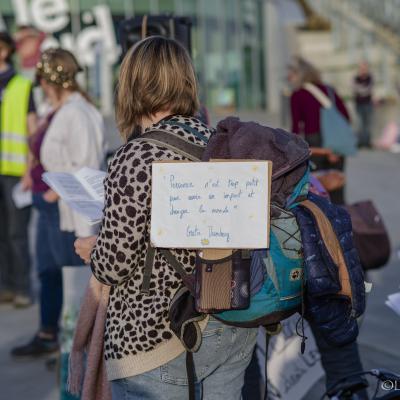 Personne n'est trop petit
pour avoir un impact et
changer le monde
Greta Thunberg